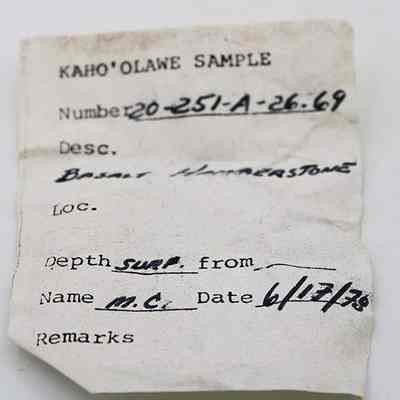 KAHO'OLAWE SAMPLE
Number 20-251-A-26.69
Desc.
BASALT HAMMERSTONE
Loc.
Depth SURF. from
Name M.C. Date 6/17/78
Remarks